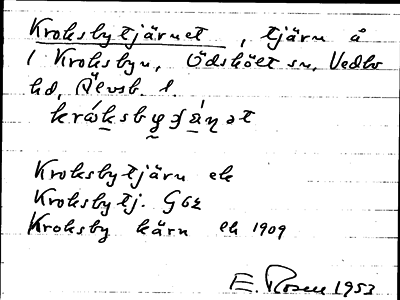 Kroksbytjärnet, tjärn å
i Kroksbyn, Ödskölt sn, Vedbo
hd, Älvsb. l.
Kroksbytjärn ek
Kroksbytj. G62
Kroksby kärn ek 1909
E. Rosen 1953